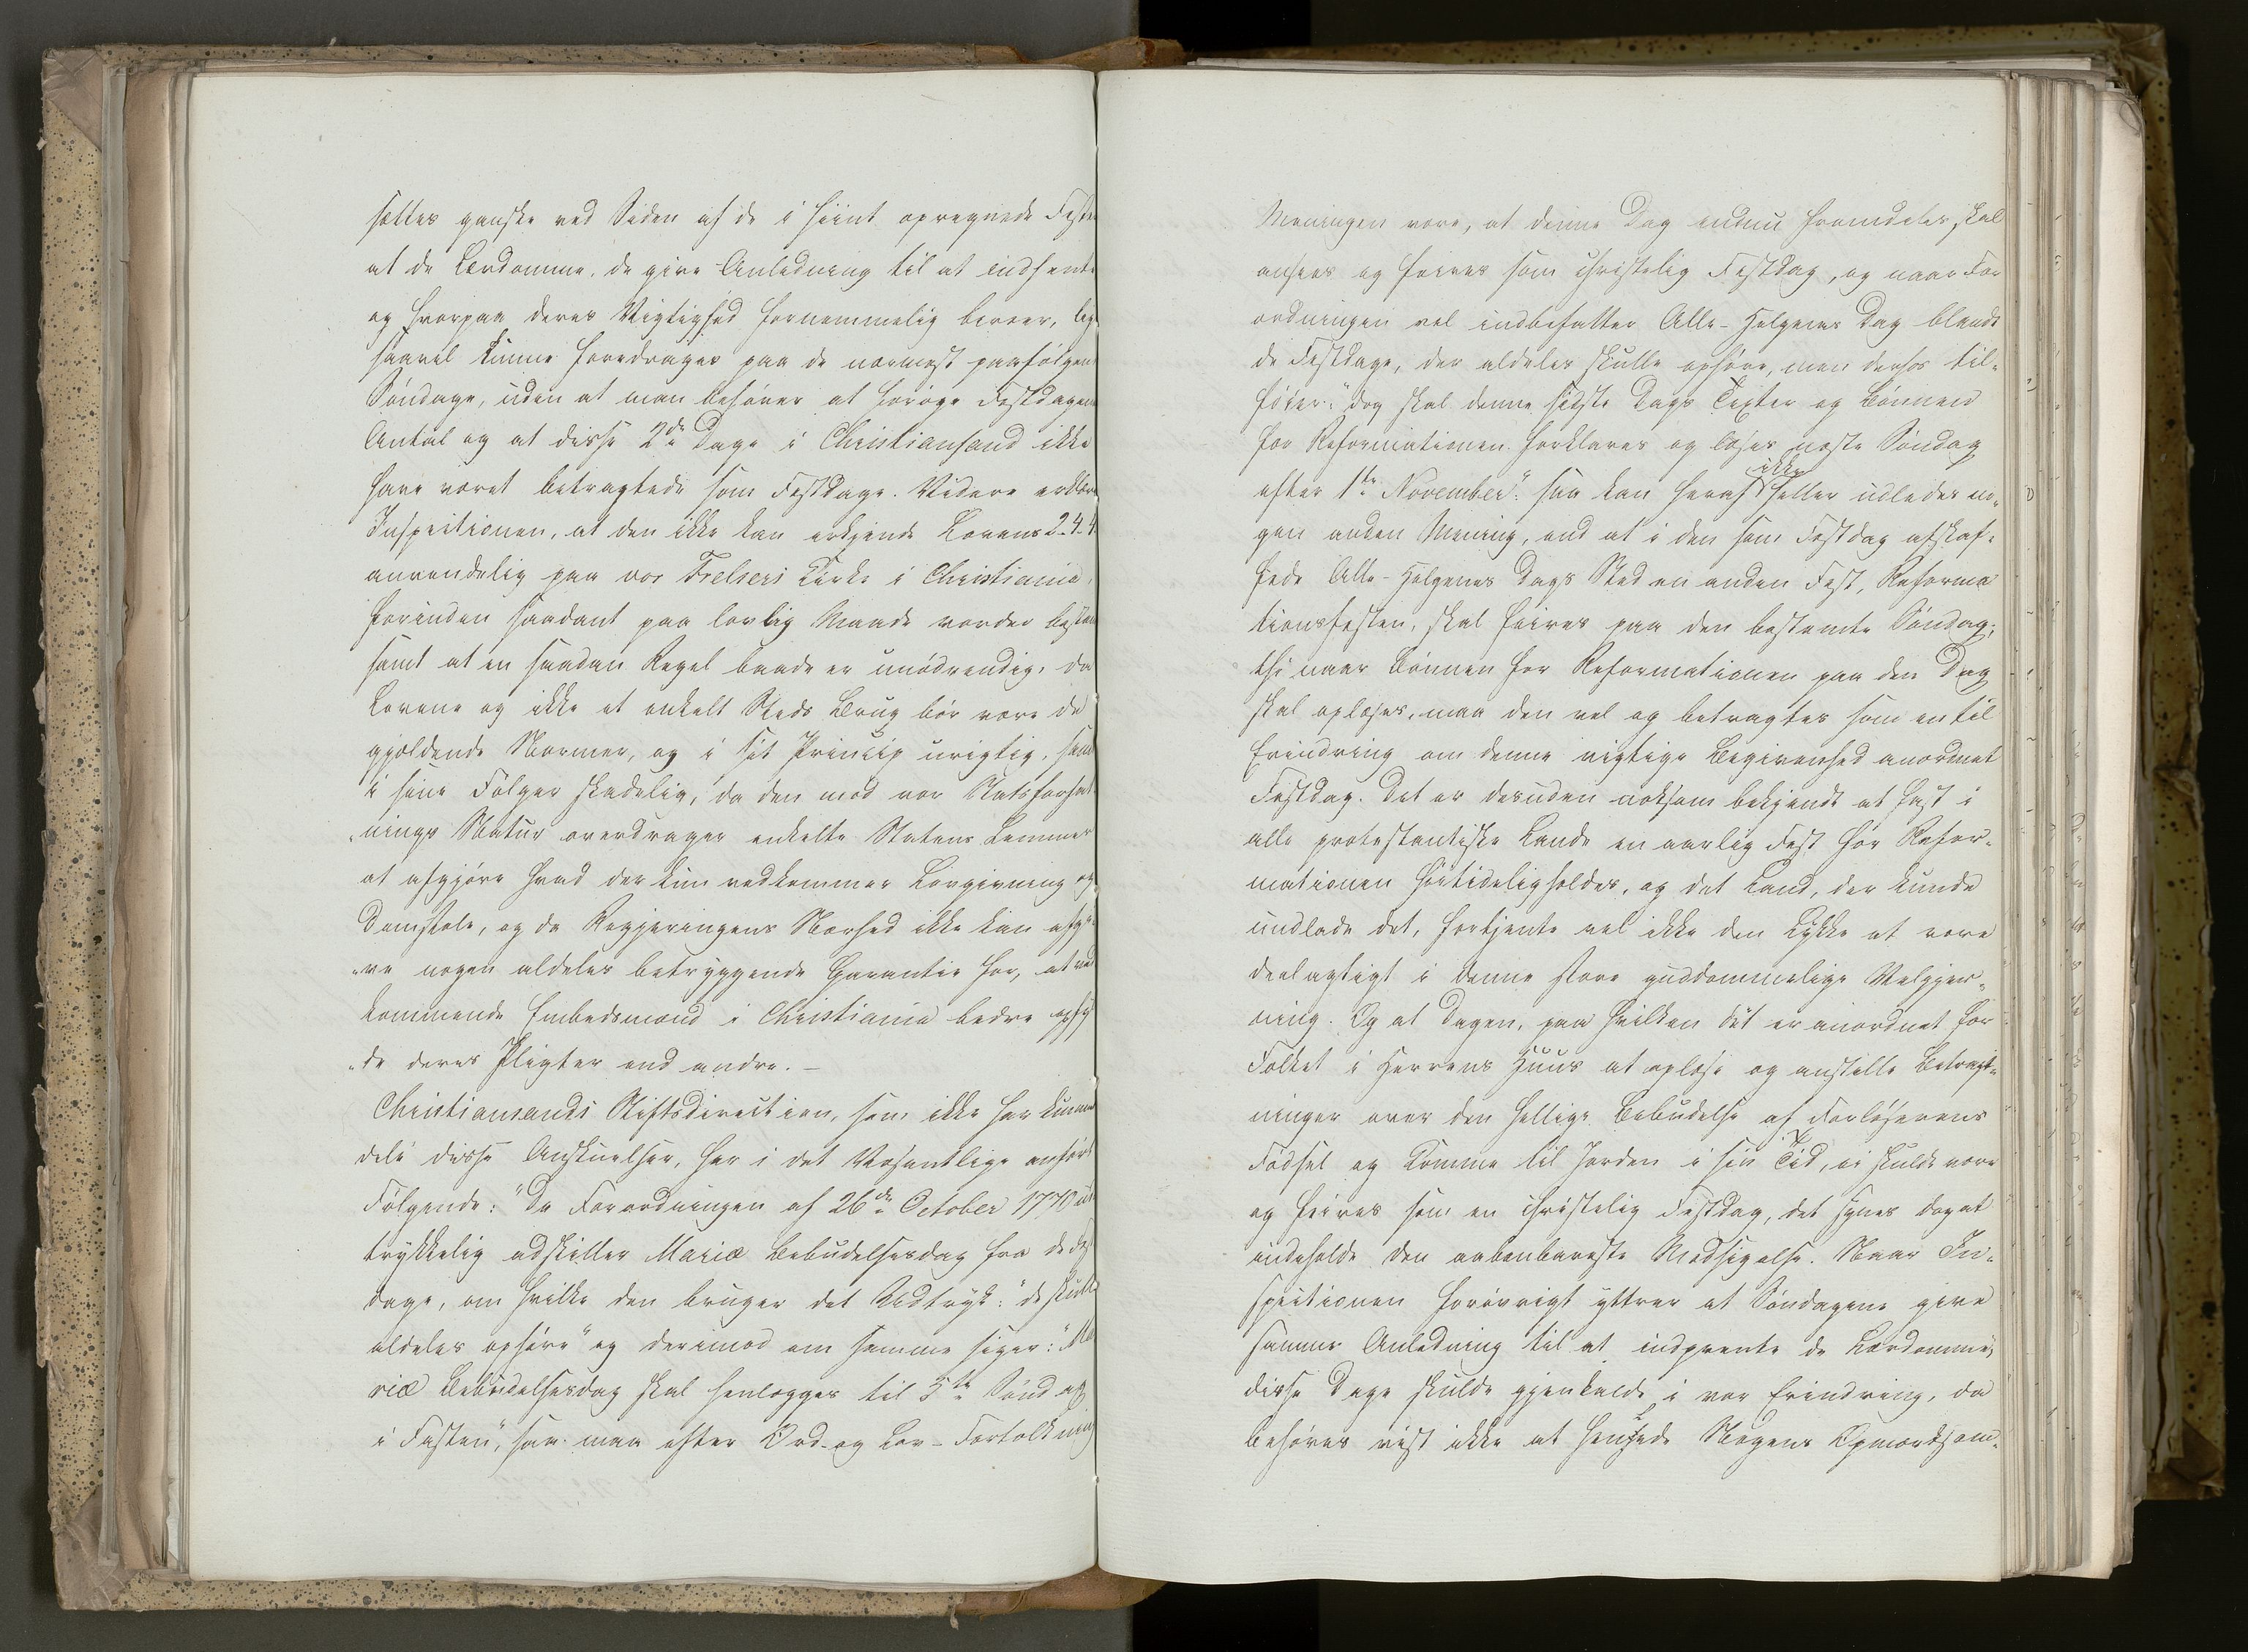 sættes ganske ved Siden af de i hiint opregnede Feste
at de Lærdomme, de give Anledning til at indhente
og hvorpaa deres Vigtighed fornemmelig beroer, lig
saavel kunne foredrages paa de nærmest paafølgen
Søndage, uden at man behøver at forøge Festdagene
Antal og at disse 2de Dage i Christiansand ikke
have været betragtede som Festdage. Videre erklære
Inspectionen, at den ikke kan erkjende Lovens 2-4-4
anvendelig paa vor Frelsers Kirke i Christiania,
forinden saadant paa lovlig Maade vorder bestem
samt at en saadan Regel baade er unødvendig, da
Lovene og ikke et enkelt Steds Brug bør være de
gjældende Normer, og i sit Princip urigtig, samt
i sine Følger skadelig, da den mod vor Statsforfat
nings Natur overdrager enkelte Statens Lemmer
at afgjøre hvad der kun vedkommer Lovgivning og
Domstole, og da Regjeringens Nærhed ikke kan afgi
ve nogen aldeles betryggende Garantie for, at ved
kommende Embedsmænd i Christiania bedre opfyl
de deres Pligter end andre. –
Christiansands Stiftsdirection, som ikke har kunnet
dele disse Anskuelser, har i det Væsentlige anført
Følgende: "Da Forordningen af 26de October 1770 ud
trykkelig adskiller Mariæ Bebudelsesdag fra de Fest
dage, om hvilke den bruger det Udtryk: "de skulle
aldeles ophøre" og derimod om samme siger: "Ma
riæ Bebudelsesdag skal henlægges til 5te Sønd
i Fasten", saa maa efter Ord- og Lov-Fortolkning
Meningen være, at denne Dag endnu fremdeles skal
ansees og feires som christelig Festdag, og naar For
ordningen vel indbefatter Alle-Helgenes Dag blandt
de Festdage, der aldeles skulle ophøre, men derhos til-
føier: "dog skal denne sidste Dags Texter og Bønnen
for Reformationen forklares og læses næste Søndag
ikke
efter 1te November": saa kan heraf heller udledes no-
gen anden Mening, end at i den som Festdag afskaf-
fede Alle-Helgenes Dags Sted en anden Fest, Reforma
tionsfesten, skal feires paa den bestemte Søndag;
thi naar Bønnen for Reformationen paa den Dag
skal oplæses, maa den vel og betragtes som en til
Erindring om denne vigtige Begivenhed anordnet
Festdag. Det er desuden noksom bekjendt at fast i
alle protestantiske Lande en aarlig Fest for Refor-
mationen høitideligholdes, og det Land, der kunde
undlade det, fortjente vel ikke den Lykke at være
deelagtigt i denne store guddommelige Velgjer-
ning. Og at Dagen, paa hvilken det er anordnet for
Folket i Herrens Huus at oplæse og anstille Betragt-
ninger over den hellige Bebudelse af Forløserens
Fødsel og Komme til Jorden i sin Tid, ei skulde være
og feires som en christelig Festdag, det synes dog at
indeholde den aabenbareste Modsigelse. Naar In-
spectionen forøvrigt yttrer at Søndagene give
samme Anledning til at indprente de Lærdomme,
disse Dage skulde gjenkalde i vor Erindring, da
behøves vist ikke at henlede Nogens Opmærksom-